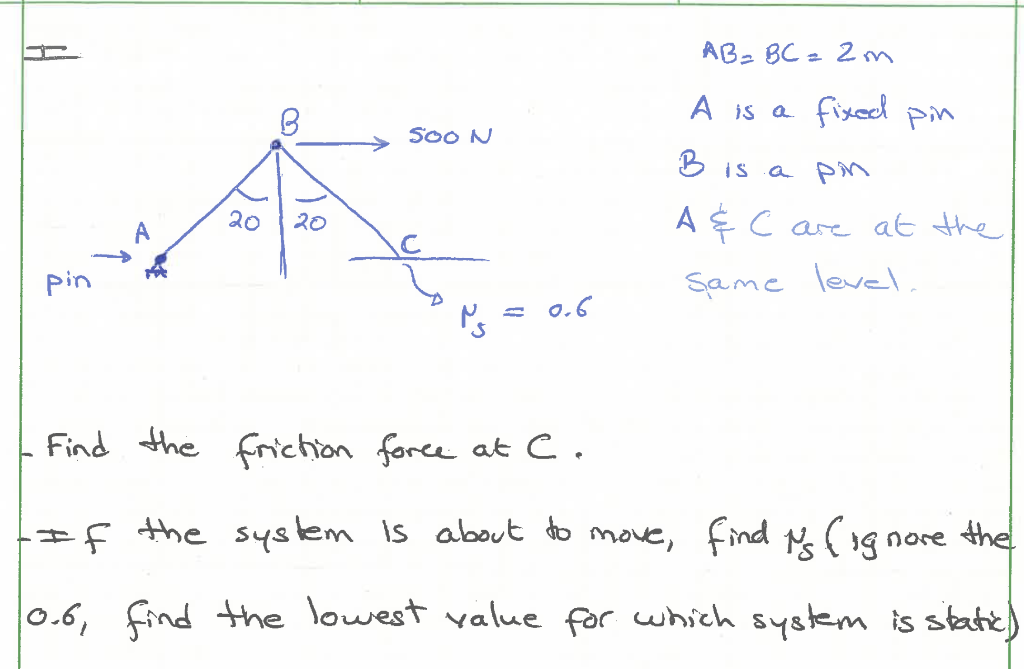 I
AB = BC = 2 m
A is a fixed pin
B is a pin
A & C are at the
same level.
B
500 N
20
20
A
C
pin
μs = 0.6
- Find the friction force at C.
- If the system is about to move, find μs (ignore the
0.6, find the lowest value for which system is static)